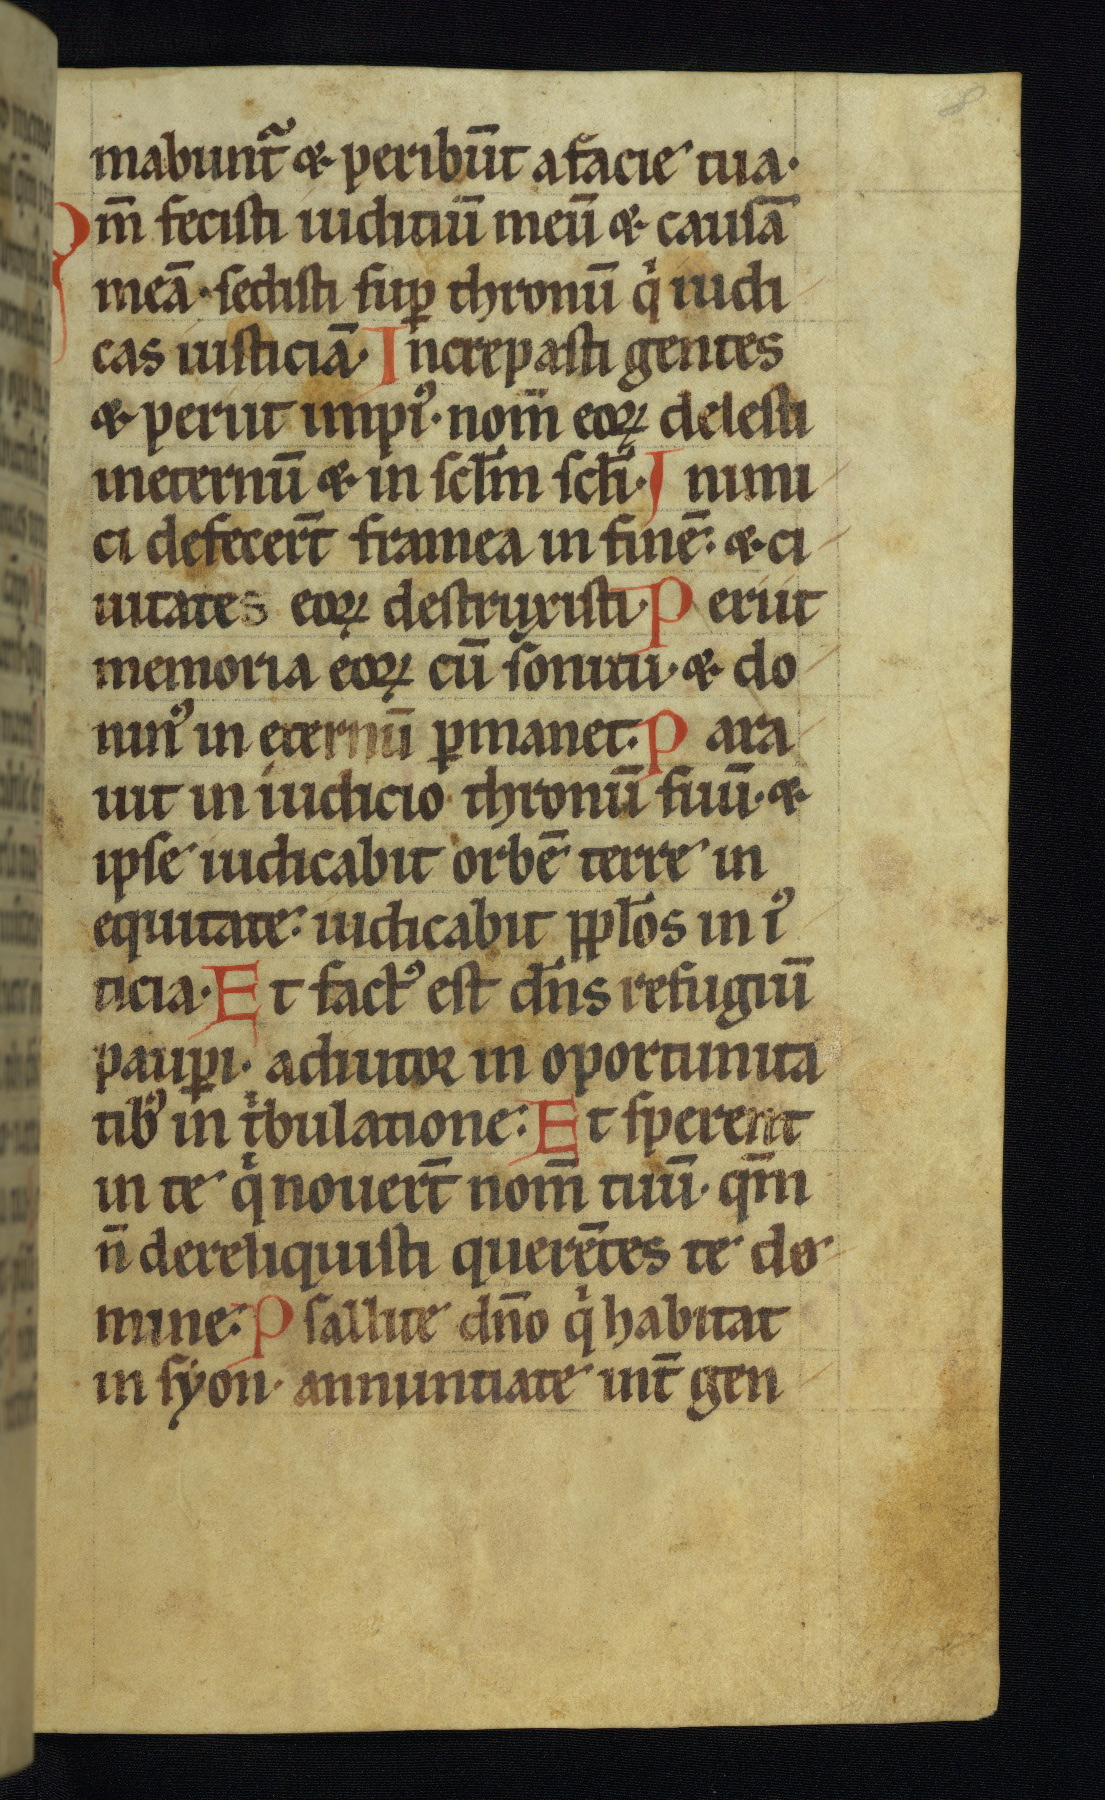 mabunt᷑ & peribūt a facie tua·
Qm̄ fecisti iuditiū meū & causā
meā· sedisti sup̱ thronū qͥ iudi
cas iusticiā· Increpasti gentes
& periit impiꝰ· nom̄ eoꝝ delesti
ineternū & in scl̄m scl̄i· Inimi
ci defecert̄ framea in finē: & ci
uitates eoꝝ destruxisti· Periit
memoria eoꝝ cū sonitu· & do
minꝰ in eternū ꝑmanet· Para
uit in iudicio thronū suū· &
ipse iudicabit orbē terre in
equitate: iudicabit pp̄los in iꝰ
ticia· Et factꝰ est dn̄s refugiū
pauꝑi· adiutor in oportunita
tibꝰ in tͥbulatione: Et sperent
in te qͥ nouert̄ nom̄ tuū· qm̄
n̄ dereliquisti querētes te do
mine: Psallite dn̄o qͥ habitat
in syon· annuntiate int̄ gen